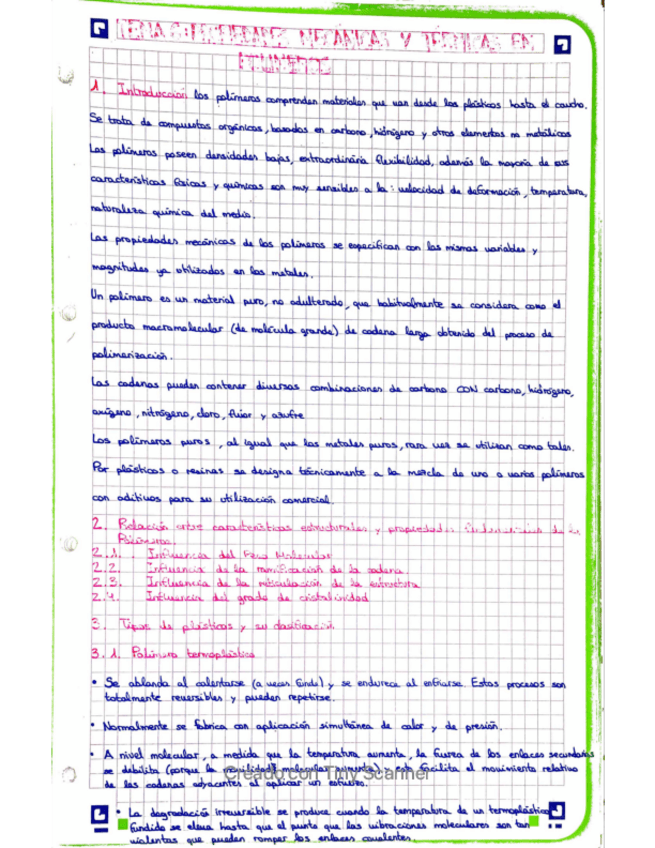 TEMA 6: PROPIEDADES MECÁNICAS Y TÉRMICAS EN
POLÍMEROS
1. Introducción los polímeros comprenden materiales que van desde los plásticos hasta el caucho.
Se trata de compuestos orgánicos, basados en carbono, hidrógeno y otros elementos no metálicos
Los polímeros poseen densidades bajas, extraordinaria flexibilidad, además la mayoría de sus
características físicas y químicas son muy sensibles a la: velocidad de deformación, temperatura,
naturaleza química del medio.
Las propiedades mecánicas de los polímeros se especifican con las mismas variables y
magnitudes ya utilizados en los metales.
Un polímero es un material puro, no adulterado, que habitualmente se considera como el
producto macromolecular (de molécula grande) de cadena larga obtenido del proceso de
polimerización.
Las cadenas pueden contener diversas combinaciones de carbono CON carbono, hidrógeno,
oxígeno, nitrógeno, cloro, flúor y azufre
Los polímeros puros, al igual que los metales puros, rara vez se utilizan como tales.
Por plásticos o resinas se designa técnicamente a la mezcla de uno o varios polímeros
con aditivos para su utilización comercial.
2. Relación entre características estructurales y propiedades de los
Polímeros.
2.1. Influencia del Peso Molecular
2.2. Influencia de la ramificación de la cadena.
2.3. Influencia de la reticulación de la estructura
2.4. Influencia del grado de cristalinidad
3. Tipos de plásticos y su clasificación.
3.1. Polímero termoplástico
• Se ablanda al calentarse (a veces funde) y se endurece al enfriarse. Estos procesos son
totalmente reversibles y pueden repetirse.
• Normalmente se fabrica con aplicación simultánea de calor y de presión.
• A nivel molecular, a medida que la temperatura aumenta, la fuerza de los enlaces secundarios
se debilita (porque la movilidad molecular aumenta) y esto facilita el movimiento relativo
Creado con Tiny Scanner
de las cadenas adyacentes al aplicar un esfuerzo.
• La degradación irreversible se produce cuando la temperatura de un termoplástico
fundido se eleva hasta que el punto que las vibraciones moleculares son tan
violentas que pueden romper los enlaces covalentes.